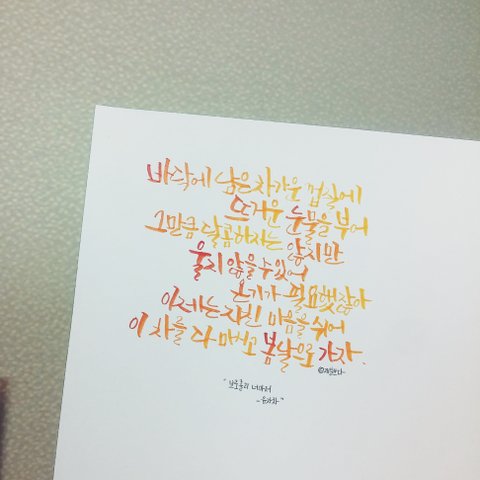 바닥에 남은 차가운 껍질에
뜨거운 눈물을 부어
그만큼 달콤하지는 않지만
울지 않을 수 있어
온기가 필요했잖아
이제는 지친 마음을 쉬어
이 차를 다 마시고 봄날으로 가자.
"브로콜리 너마저
-유자차"